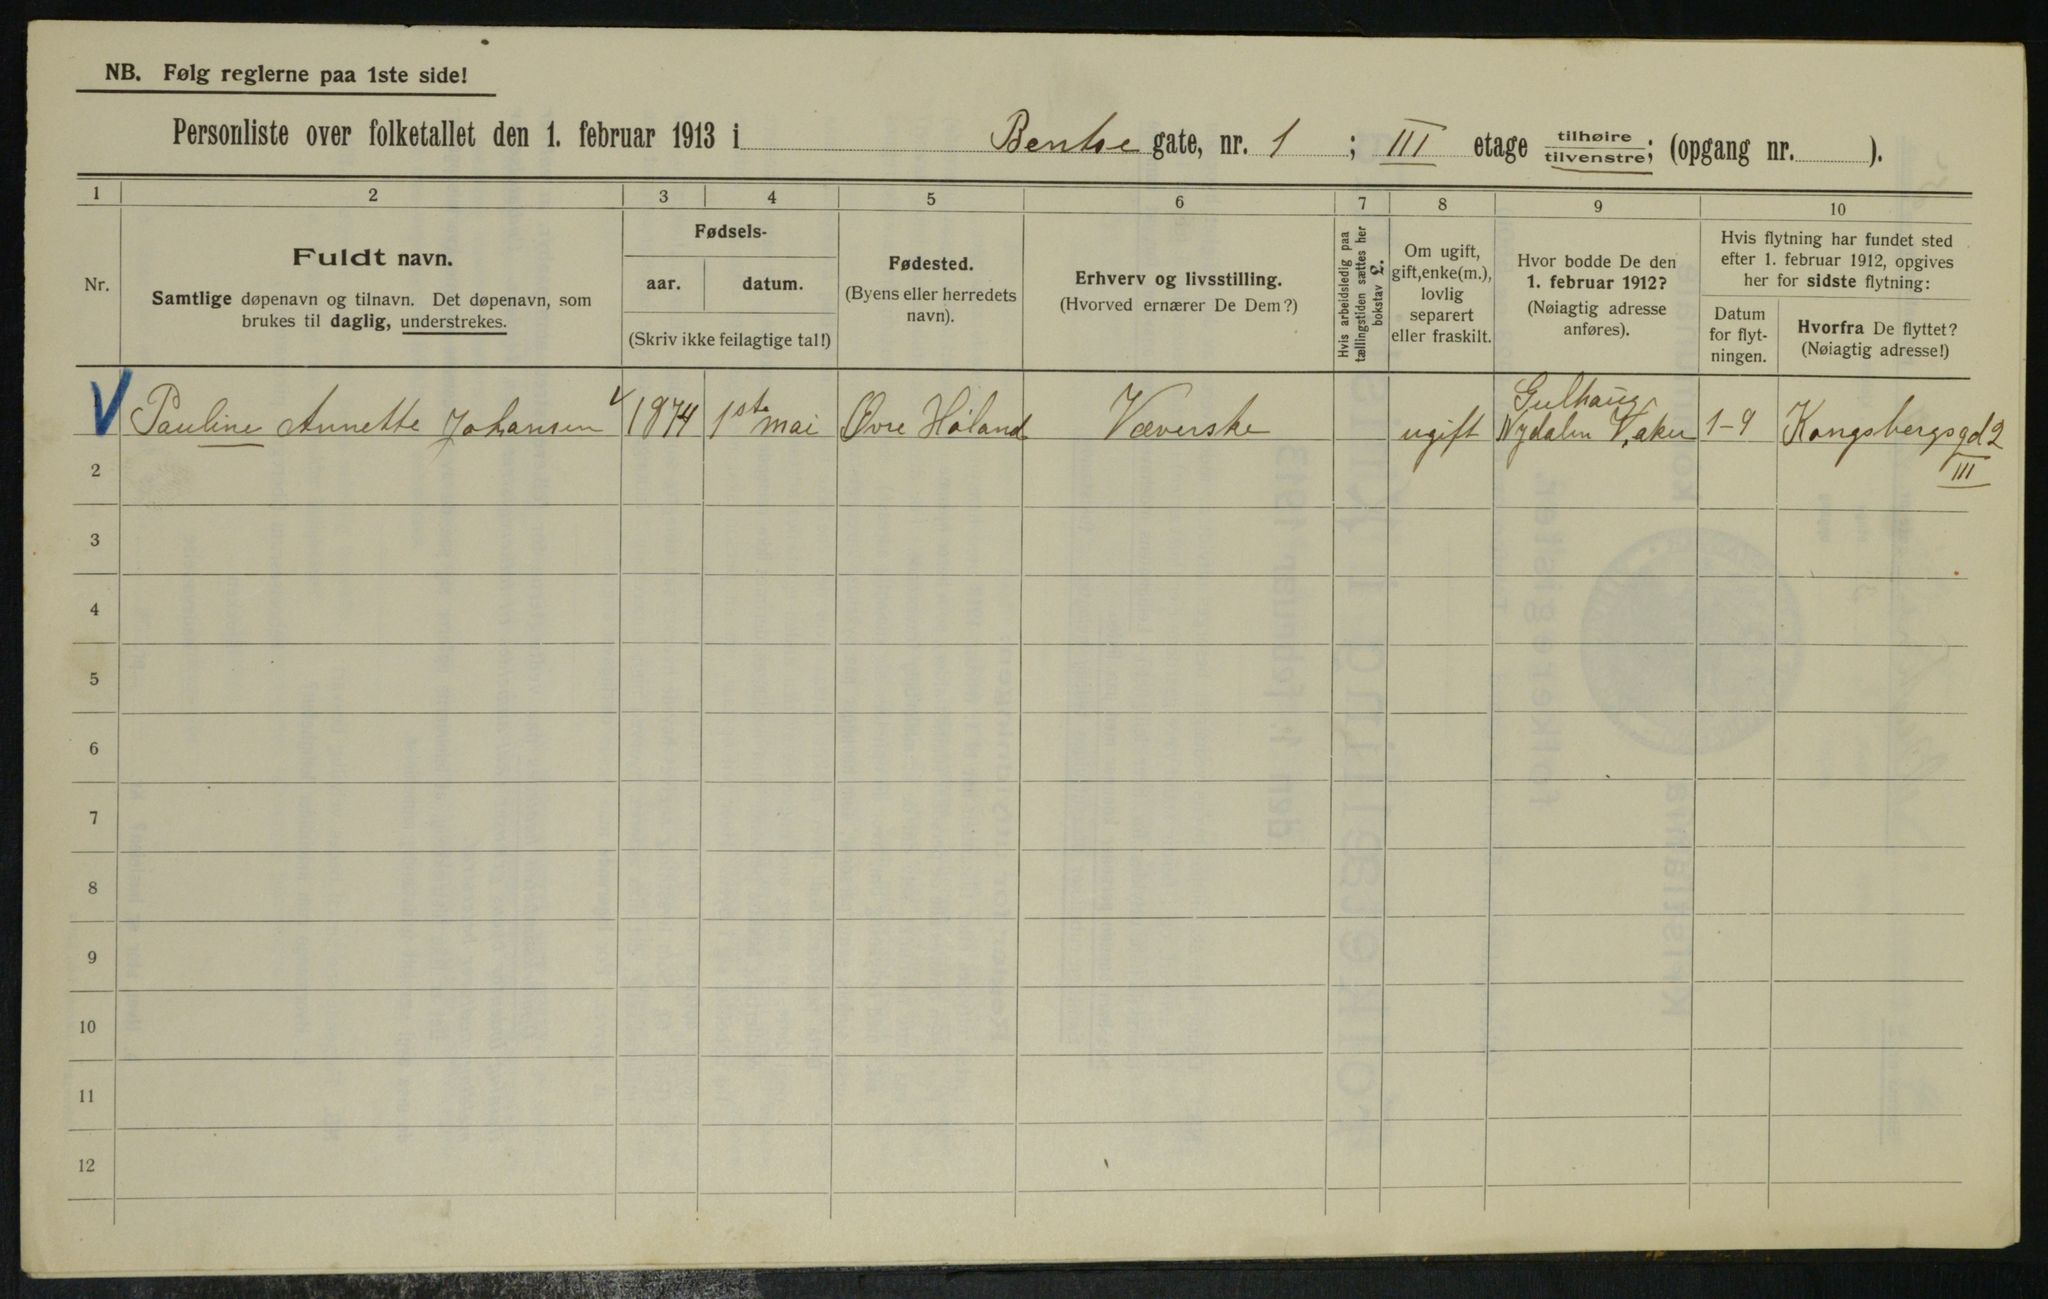 NB. Følg reglerne paa 1ste side!
Personliste over folketallet den 1. februar 1913 i Bentse gate, nr. 1 ; III etage tilhøire tilvenstre; (opgang nr. ).
1 2 3 4 5 6 7 8 9 10
Nr.
Fuldt navn.
Samtlige døpenavn og tilnavn. Det døpenavn, som
brukes til daglig, understrekes.
Fødsels-
aar. datum.
(Skriv ikke feilagtige tal!)
Fødested.
(Byens eller herredets
navn).
Erhverv og livsstilling.
(Hvorved ernærer De Dem?)
Hvis arbeidsledig paa
tællingstiden sættes her
bokstav L.
Om ugift,
gift, enke(m.),
lovlig
separert
eller fraskilt.
Hvor bodde De den
1. februar 1912?
(Nøiagtig adresse
anføres).
Hvis flytning har fundet sted
efter 1. februar 1912, opgives
her for sidste flytning:
Datum
for flyt-
ningen.
Hvorfra De flyttet?
(Nøiagtig adresse!)
Pauline Annette Johansen 1874 1ste mai Øvre Høland Væverske ugift Gulhaug
Nydalen V. aker 1-9 Kongsbergsgd 2
III
2
3
4
5
6
7
8
9
10
11
12